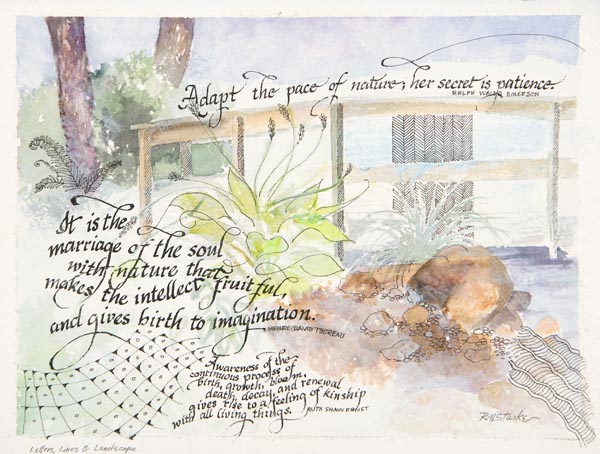 Adapt the pace of nature; her secret is patience.
RALPH WALDO EMERSON
It is the
marriage of the soul
with nature that
makes the intellect fruitful,
and gives birth to imagination.
HENRY DAVID THOREAU
Awareness of the
continuous process of
birth, growth, bloom,
death, decay, and renewal
gives rise to a feeling of kinship
with all living things.
RUTH SHAW ERNST
Letters, Lines & Landscape